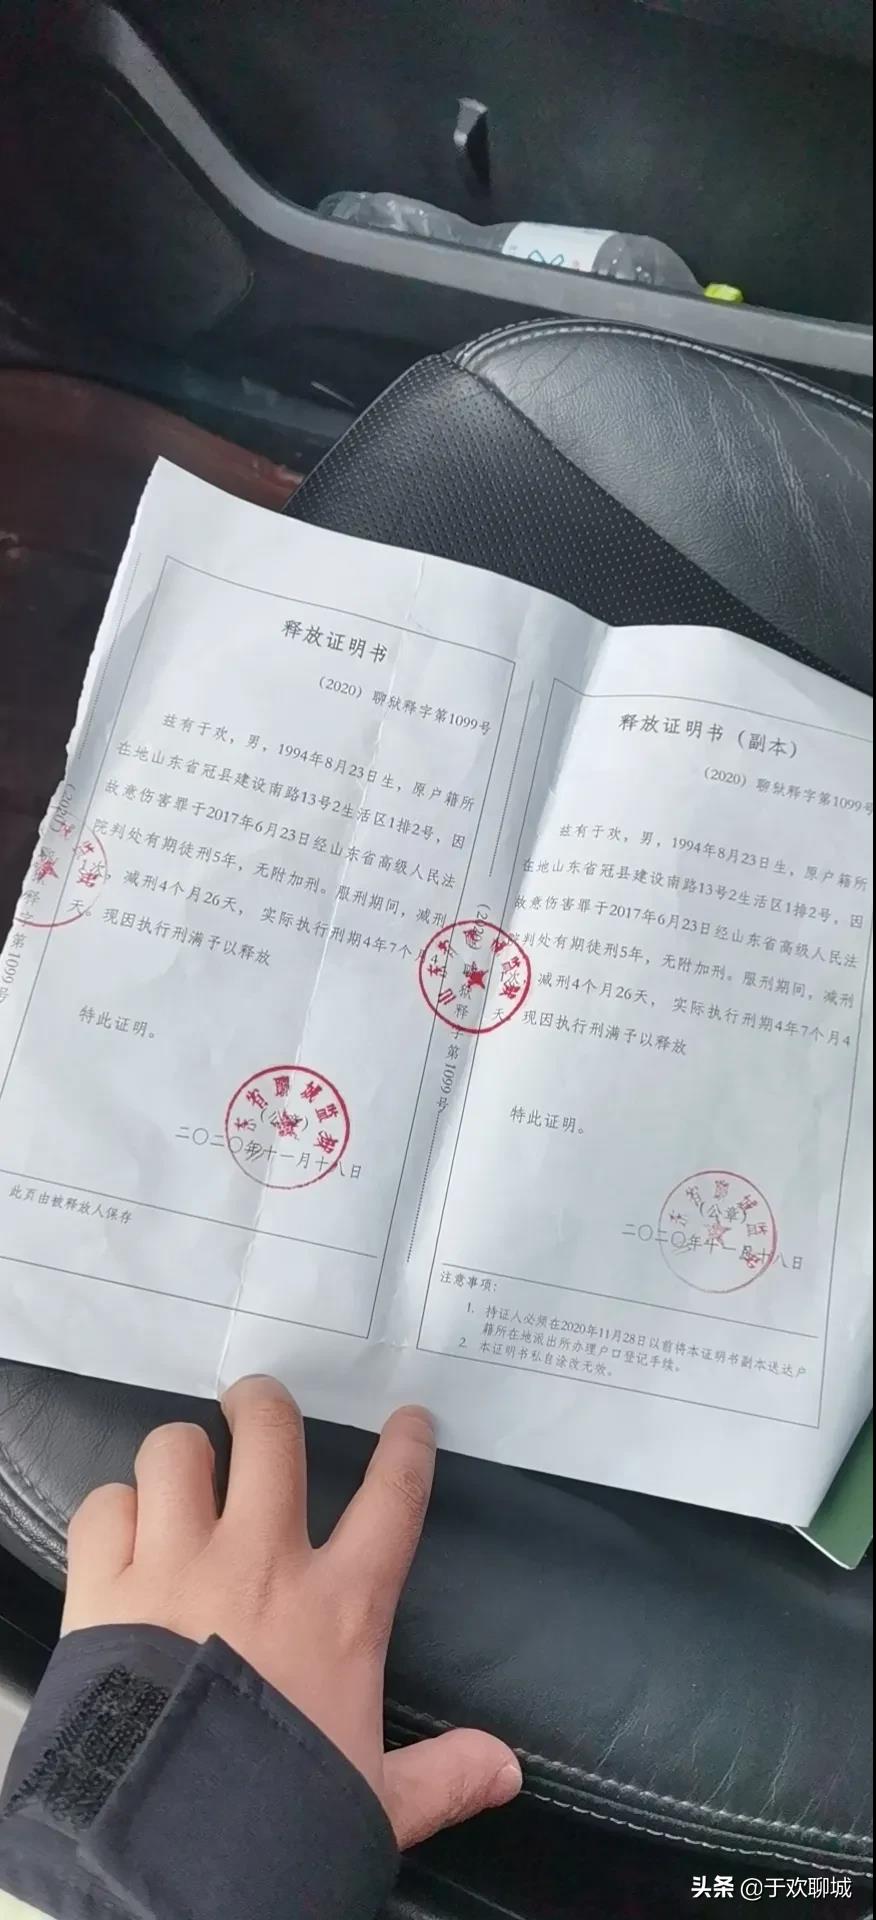 释放证明书
（2020）聊狱释字第1099号
兹有于欢，男，1994年8月23日生，原户籍所
在地山东省冠县建设南路13号2生活区1排2号，因
故意伤害罪于2017年6月23日经山东省高级人民法
院判处有期徒刑5年，无附加刑。服刑期间，减刑
1次，减刑4个月26天，实际执行刑期4年7个月4
天。现因执行刑满予以释放
特此证明。
（公章）
二〇二〇年十一月十八日
此页由被释放人保存
（2020）聊狱释字第1099号
释放证明书（副本）
（2020）聊狱释字第1099号
兹有于欢，男，1994年8月23日生，原户籍所
在地山东省冠县建设南路13号2生活区1排2号，因
故意伤害罪于2017年6月23日经山东省高级人民法
院判处有期徒刑5年，无附加刑。服刑期间，减刑
1次，减刑4个月26天，实际执行刑期4年7个月4
天。现因执行刑满予以释放
特此证明。
（公章）
二〇二〇年十一月十八日
注意事项：
1. 持证人必须在2020年11月28日以前将本证明书副本送达户
籍所在地派出所办理户口登记手续。
2. 本证明书私自涂改无效。
（2020）聊狱释字第1099号
省聊城监狱
省聊城监狱
头条 @于欢聊城